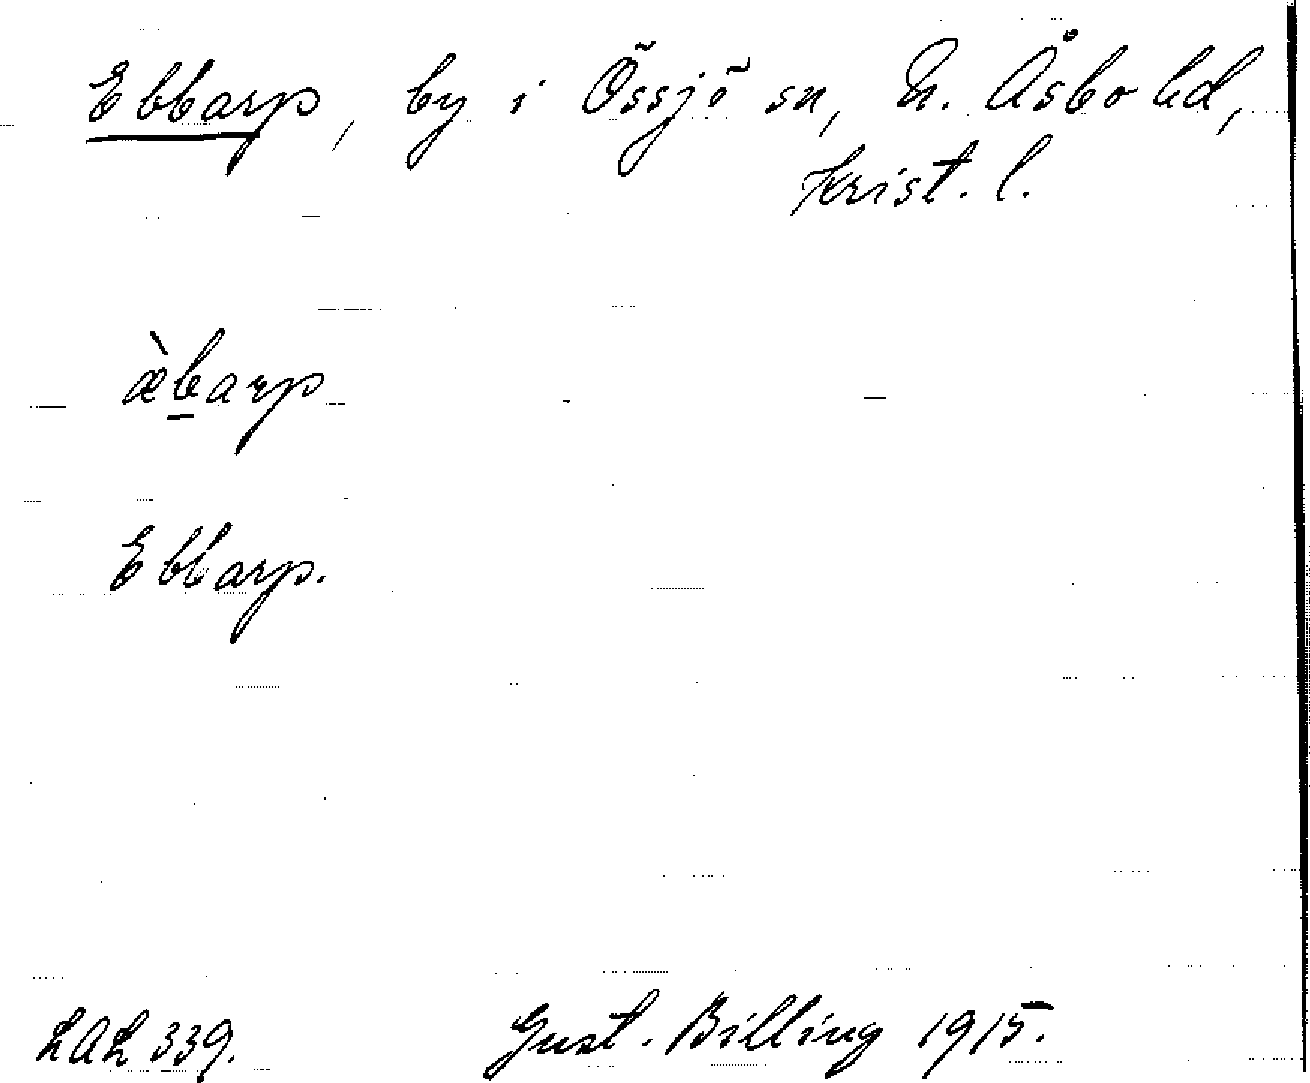 Ebbarp, by i Össjö sn, N. Åsbo hd,
Krist. l.
æ̀b̲arp
Ebbarp.
LAL 339.
Gust. Billing 1915.